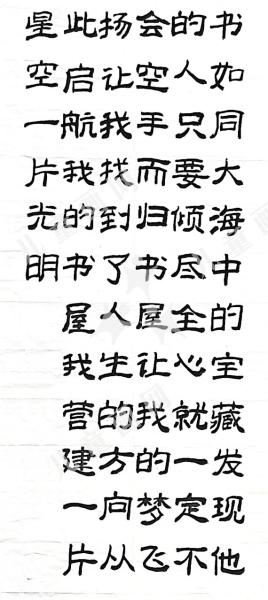 书如同大海中的宝藏发现他
的人只要倾尽全心就一定不
会空手而归书屋让我的梦飞
扬让我找到了人生的方向从
此启航我的书屋我营建一片
星空一片光明